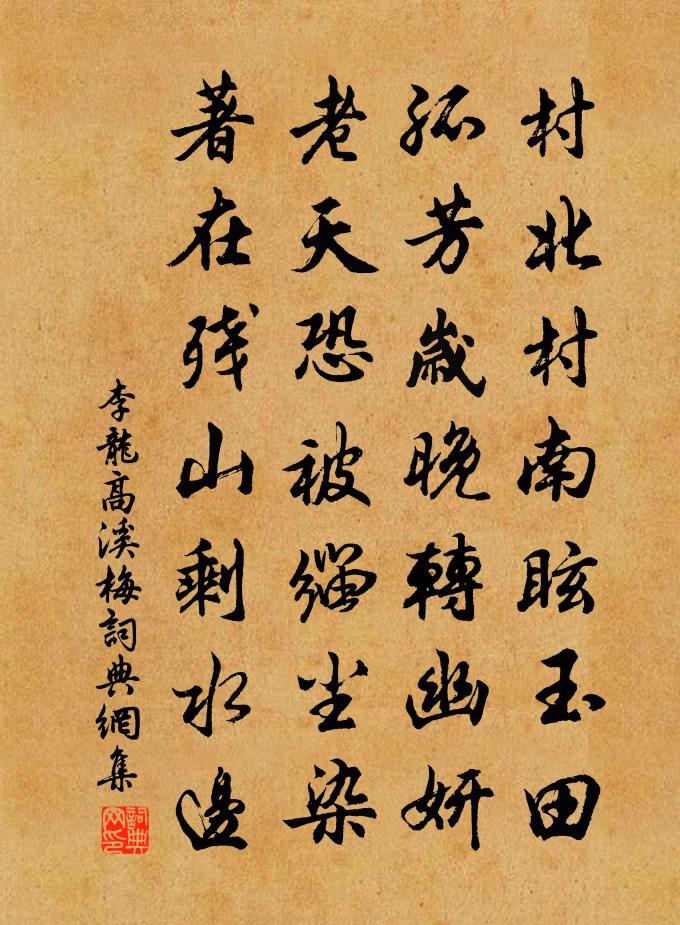 村北村南眩玉田
孤芳歲晚轉幽妍
老天恐被緇尘染
著在殘山剩水邊
李龍高溪梅詞典網集
詞典网印